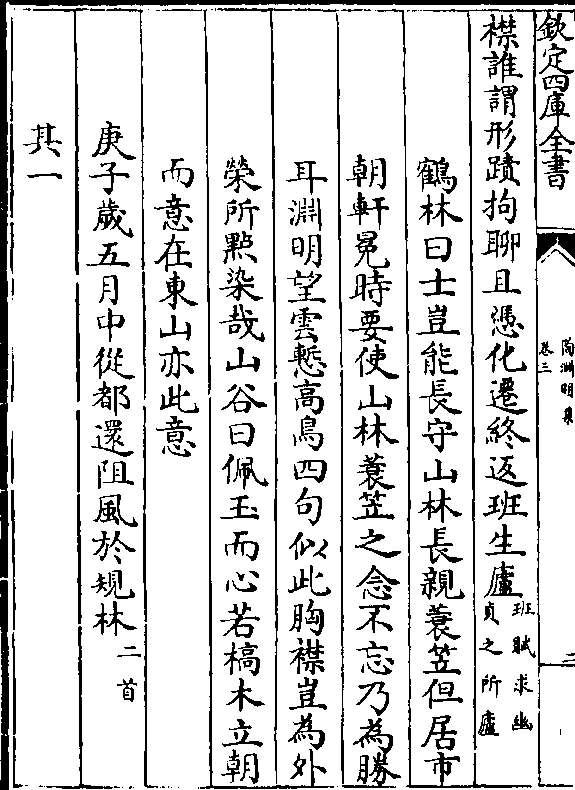 欽定四庫全書
陶淵明集
卷三
二
襟誰謂形蹟拘聊且憑化遷終返班生廬班賦求幽貞之所廬
鶴林曰士豈能長守山林長親蓑笠但居市
朝軒冕時要使山林蓑笠之念不忘乃為勝
耳淵明望雲慙高鳥四句似此胸襟豈為外
榮所㸃染哉山谷曰佩玉而心若槁木立朝
而意在東山亦此意
庚子歲五月中從都還阻風於規林二首
其一